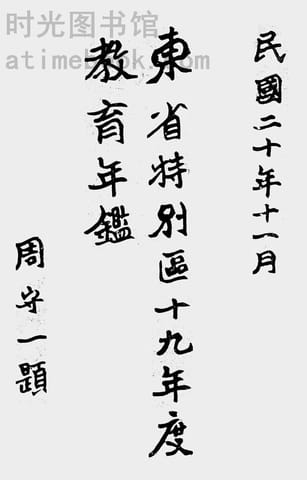 时光图书馆
atimebook.com
民國二十年十一月
東省特別區十九年度
教育年鑑
周守一題